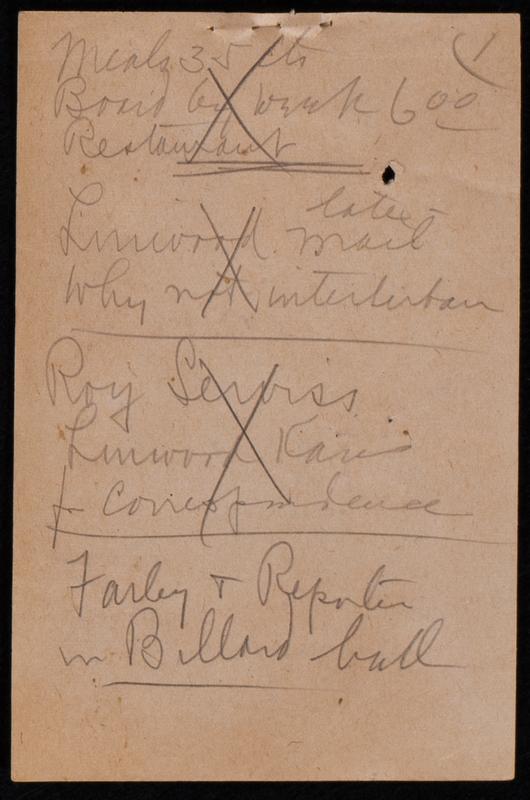 1
Meals 35 cts
Board by week 6 00
Restaurant
late
Linwood mail
Why not interurban
Roy Serviss
Linwood Kans
for correspondence
Farley + Reporter
in Billard hall